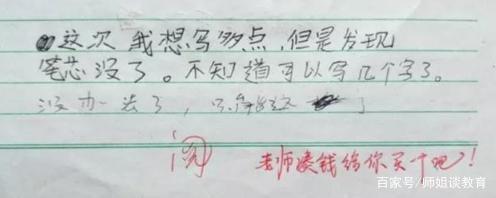 这次我想写多点,但是发现
笔芯没了。不知道可以写几个字了。
没办法了,只能这
了
阅 老师凑钱给你买一个吧!
百家号/师姐谈教育